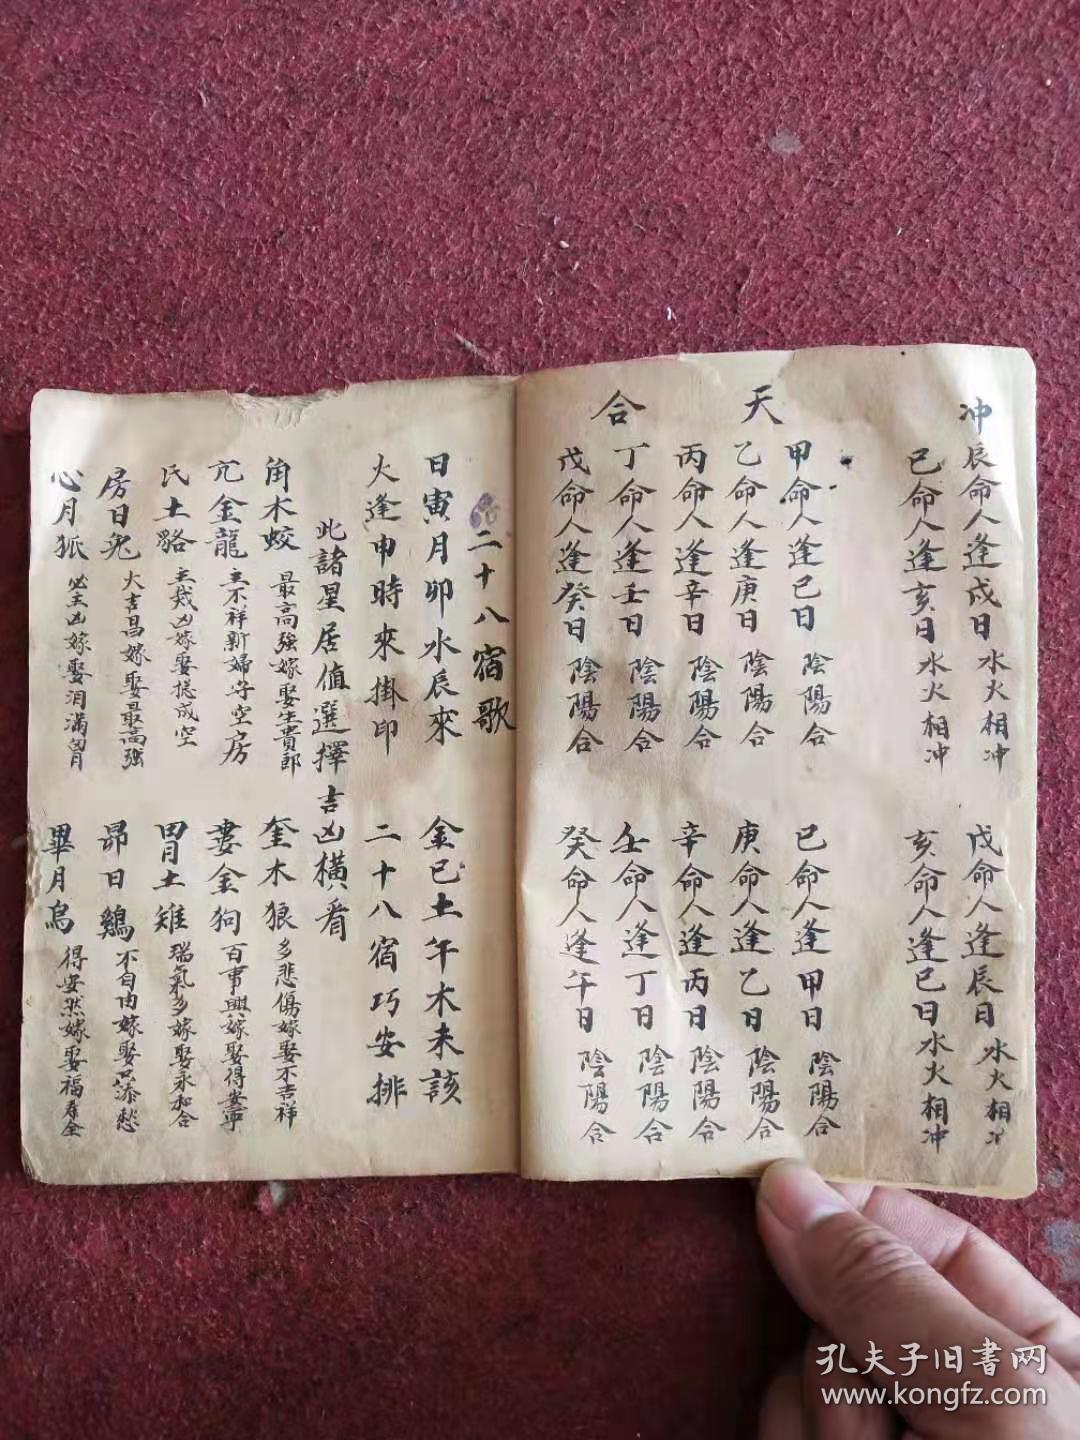 冲
辰命人逢戌日 水火相冲
戌命人逢辰日 水火相冲
巳命人逢亥日 水火相冲
亥命人逢巳日 水火相冲
天合
甲命人逢己日 陰陽合
己命人逢甲日 陰陽合
乙命人逢庚日 陰陽合
庚命人逢乙日 陰陽合
丙命人逢辛日 陰陽合
辛命人逢丙日 陰陽合
丁命人逢壬日 陰陽合
壬命人逢丁日 陰陽合
戊命人逢癸日 陰陽合
癸命人逢午日 陰陽合
二十八宿歌
日寅月卯水辰來 金巳土午木未該
火逢申時來掛印 二十八宿巧安排
此諸星居值選擇吉凶橫看
角木蛟 最高強嫁娶生貴郎
奎木狼 多悲傷嫁娶不吉祥
亢金龍 主不祥新婦守空房
婁金狗 百事興嫁娶得安寧
氏土貉 主災凶嫁娶總成空
胃土雉 瑞氣多嫁娶永和合
房日兔 大吉昌嫁娶最高強
昴日鷄 不自由嫁娶只添愁
心月狐 必主凶嫁娶泪滿胷
畢月烏 得安然嫁娶福壽全
孔夫子旧書网
www.kongfz.com